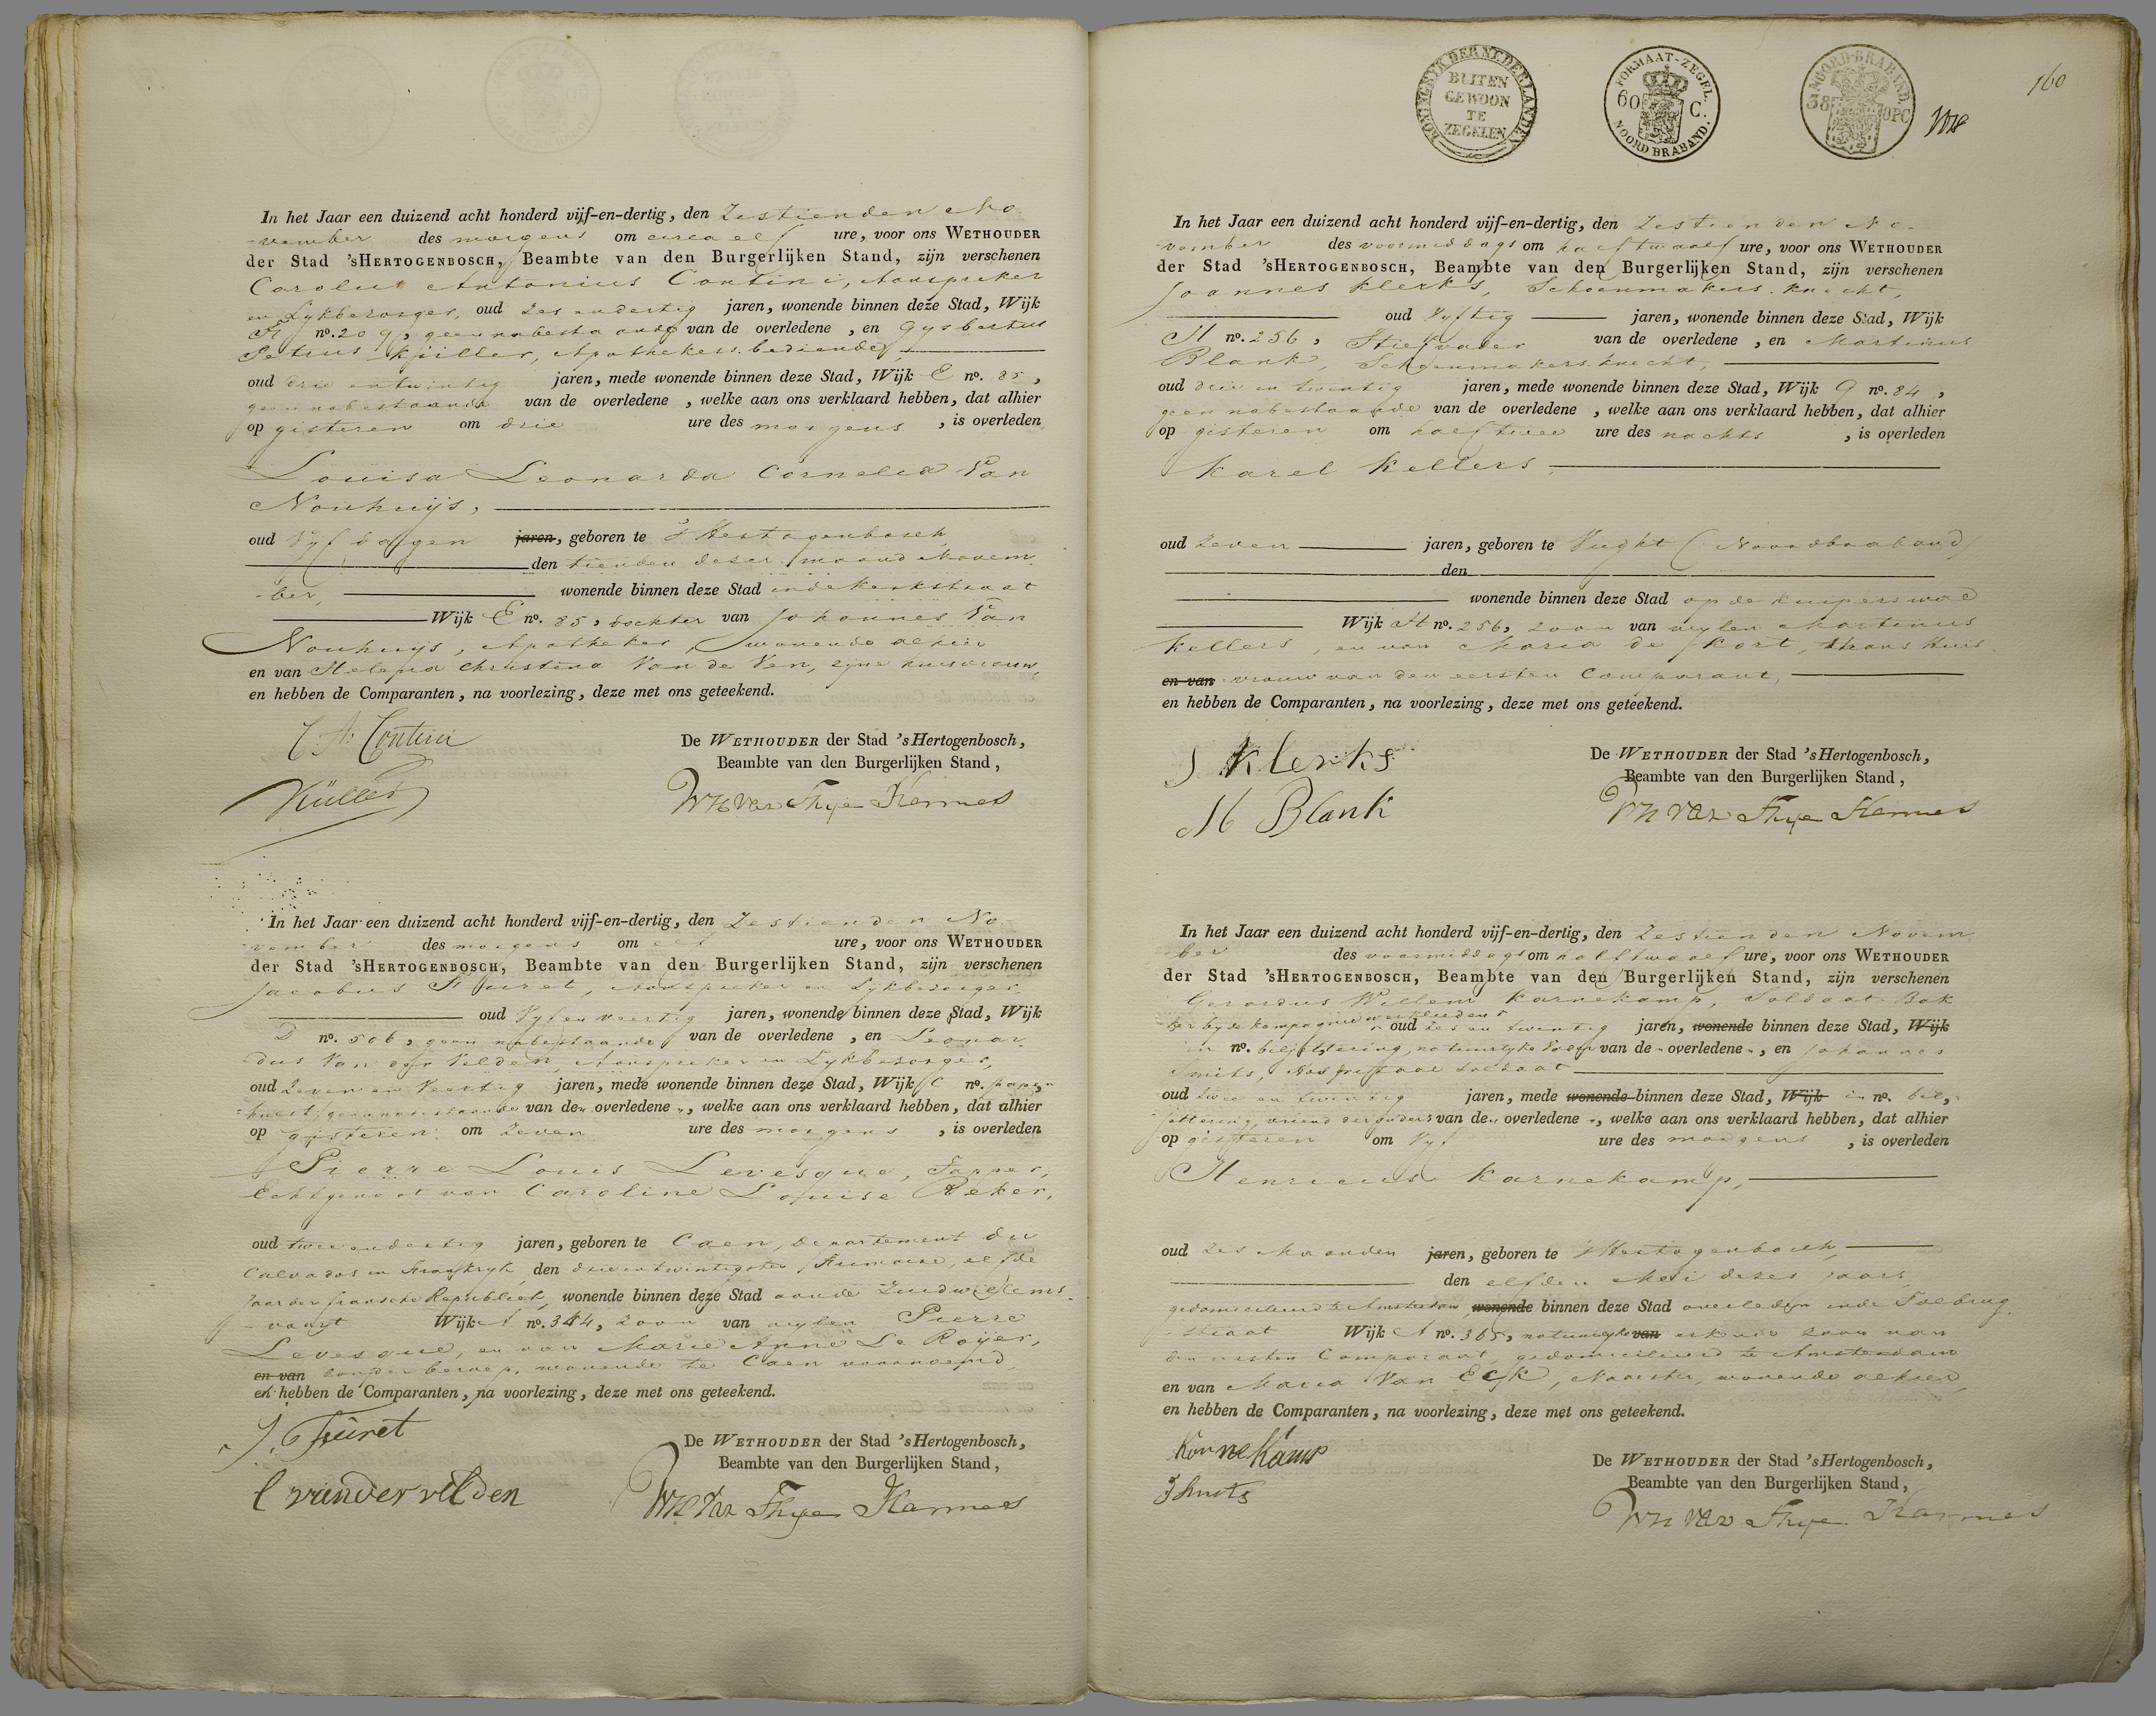 In het Jaar een duizend acht honderd vijf-en-dertig, den Zestienden No-
vember des morgens om circa elf ure, voor ons WETHOUDER
der Stad 'sHERTOGENBOSCH, Beambte van den Burgerlijken Stand, zijn verschenen
Carolus Antonius Contini, Aanspreker
en Lykbezorger, oud Zes en dertig jaren, wonende binnen deze Stad, Wijk
no. 209, geen nabestaande van de overledene, en Gysbertus
Petrus Küller, Apothekers bediende,
oud drie en twintig jaren, mede wonende binnen deze Stad, Wijk E no. 85,
geen nabestaande van de overledene, welke aan ons verklaard hebben, dat alhier
op gisteren om drie ure des morgens, is overleden
Louisa Leonarda Cornelia Van
Nouhuijs,
oud Vyf dagen jaren, geboren te 's Hertogenbosch
den tienden dezer maand Novem-
ber, wonende binnen deze Stad in de Kerkstraat
Wijk E no. 85, dochter van Johannes Van
Nouhuijs, Apotheker, wonende alhier
en van Helena Christina Van de Ven, zijne huisvrouw,
en hebben de Comparanten, na voorlezing, deze met ons geteekend.
C. A. Contini
Küller
De WETHOUDER der Stad 'sHertogenbosch,
Beambte van den Burgerlijken Stand,
van Thye Hannes
In het Jaar een duizend acht honderd vijf-en-dertig, den Zestienden No-
vember des morgens om elf ure, voor ons WETHOUDER
der Stad 'sHERTOGENBOSCH, Beambte van den Burgerlijken Stand, zijn verschenen
Jacobus Fûret, Aanspreker en Lykbezorger,
oud Vyf en veertig jaren, wonende binnen deze Stad, Wijk
D no. 506, geen nabestaande van de overledene, en Leonar-
dus Van der Velden, Aanspreker en Lykbezorger,
oud Zeven en Veertig jaren, mede wonende binnen deze Stad, Wijk C no.
geen nabestaande van den overledene, welke aan ons verklaard hebben, dat alhier
op gisteren om Zeven ure des morgens, is overleden
Pierre Louis Levesque, Tapper,
Echtgenoot van Caroline Louise Reker,
oud twee en dertig jaren, geboren te Caen, Departement du
Calvados in Frankryk, den drie en twintigsten Frimaire, elfde
Jaar der fransche Republiek, wonende binnen deze Stad aan de Zuidwillems-
vaart Wijk A no. 344, zoon van wylen Pierre
Levesque, en van Marie Anne Le Royer,
en van zonder beroep, wonende te Caen voornoemd,
en hebben de Comparanten, na voorlezing, deze met ons geteekend.
J. Fûret
L van der velden
De WETHOUDER der Stad 'sHertogenbosch,
Beambte van den Burgerlijken Stand,
van Thye Hannes
KONINGRYK DER NEDERLANDEN
BUITEN
GEWOON
TE
ZEGELEN
FORMAAT-ZEGEL.
60 C.
NOORD BRABAND.
NOORD-BRABAND.
38 OPC
160
In het Jaar een duizend acht honderd vijf-en-dertig, den Zestienden No-
vember des voormiddags om half twaalf ure, voor ons WETHOUDER
der Stad 'sHERTOGENBOSCH, Beambte van den Burgerlijken Stand, zijn verschenen
Joannes Klerks, Schoenmakers knecht,
oud Vyftig jaren, wonende binnen deze Stad, Wijk
H no. 256, Stiefvader van de overledene, en Martinus
Blank, Schoenmakers knecht,
oud drie en twintig jaren, mede wonende binnen deze Stad, Wijk G no. 84,
geen nabestaande van de overledene, welke aan ons verklaard hebben, dat alhier
op gisteren om half twee ure des nachts, is overleden
Karel Kellers,
oud Zeven jaren, geboren te Vught (Noordbraband)
den
wonende binnen deze Stad op de Kuiperswal
Wijk H no. 256, zoon van wylen Martinus
Kellers, en van Maria de Kort, thans Huis-
en van vrouw van den eersten Comparant,
en hebben de Comparanten, na voorlezing, deze met ons geteekend.
J Klerks
M Blank
De WETHOUDER der Stad 'sHertogenbosch,
Beambte van den Burgerlijken Stand,
van Thye Hannes
In het Jaar een duizend acht honderd vijf-en-dertig, den Zestienden Novem-
ber des voormiddags om half twaalf ure, voor ons WETHOUDER
der Stad 'sHERTOGENBOSCH, Beambte van den Burgerlijken Stand, zijn verschenen
Gerardus Willem Karnekamp, Soldaat Bak
ker by de kompagnie werklieden oud Zes en twintig jaren, wonende binnen deze Stad, Wijk
in no. biljettering, natuurlyke Vader van de overledene, en Johannes
Smits, Hospitaal soldaat
oud twee en twintig jaren, mede wonende binnen deze Stad, Wijk in no. bil-
jettering, vriend der ouders van den overledene, welke aan ons verklaard hebben, dat alhier
op gisteren om Vyf ure des morgens, is overleden
Henricus Karnekamp,
oud Zes Maanden jaren, geboren te 's Hertogenbosch,
den elfden Mei dezes jaars,
gedomicilieerd te Amsterdam, wonende binnen deze Stad overleden in de Tolbrug-
straat Wijk A no. 365, natuurlyke van erkende zoon van
den eersten Comparant, gedomicilieerd te Amsterdam
en van Maria Van Eck, Naaister, wonende alhier,
en hebben de Comparanten, na voorlezing, deze met ons geteekend.
Karnekamp
J Smits
De WETHOUDER der Stad 'sHertogenbosch,
Beambte van den Burgerlijken Stand,
van Thye Hannes